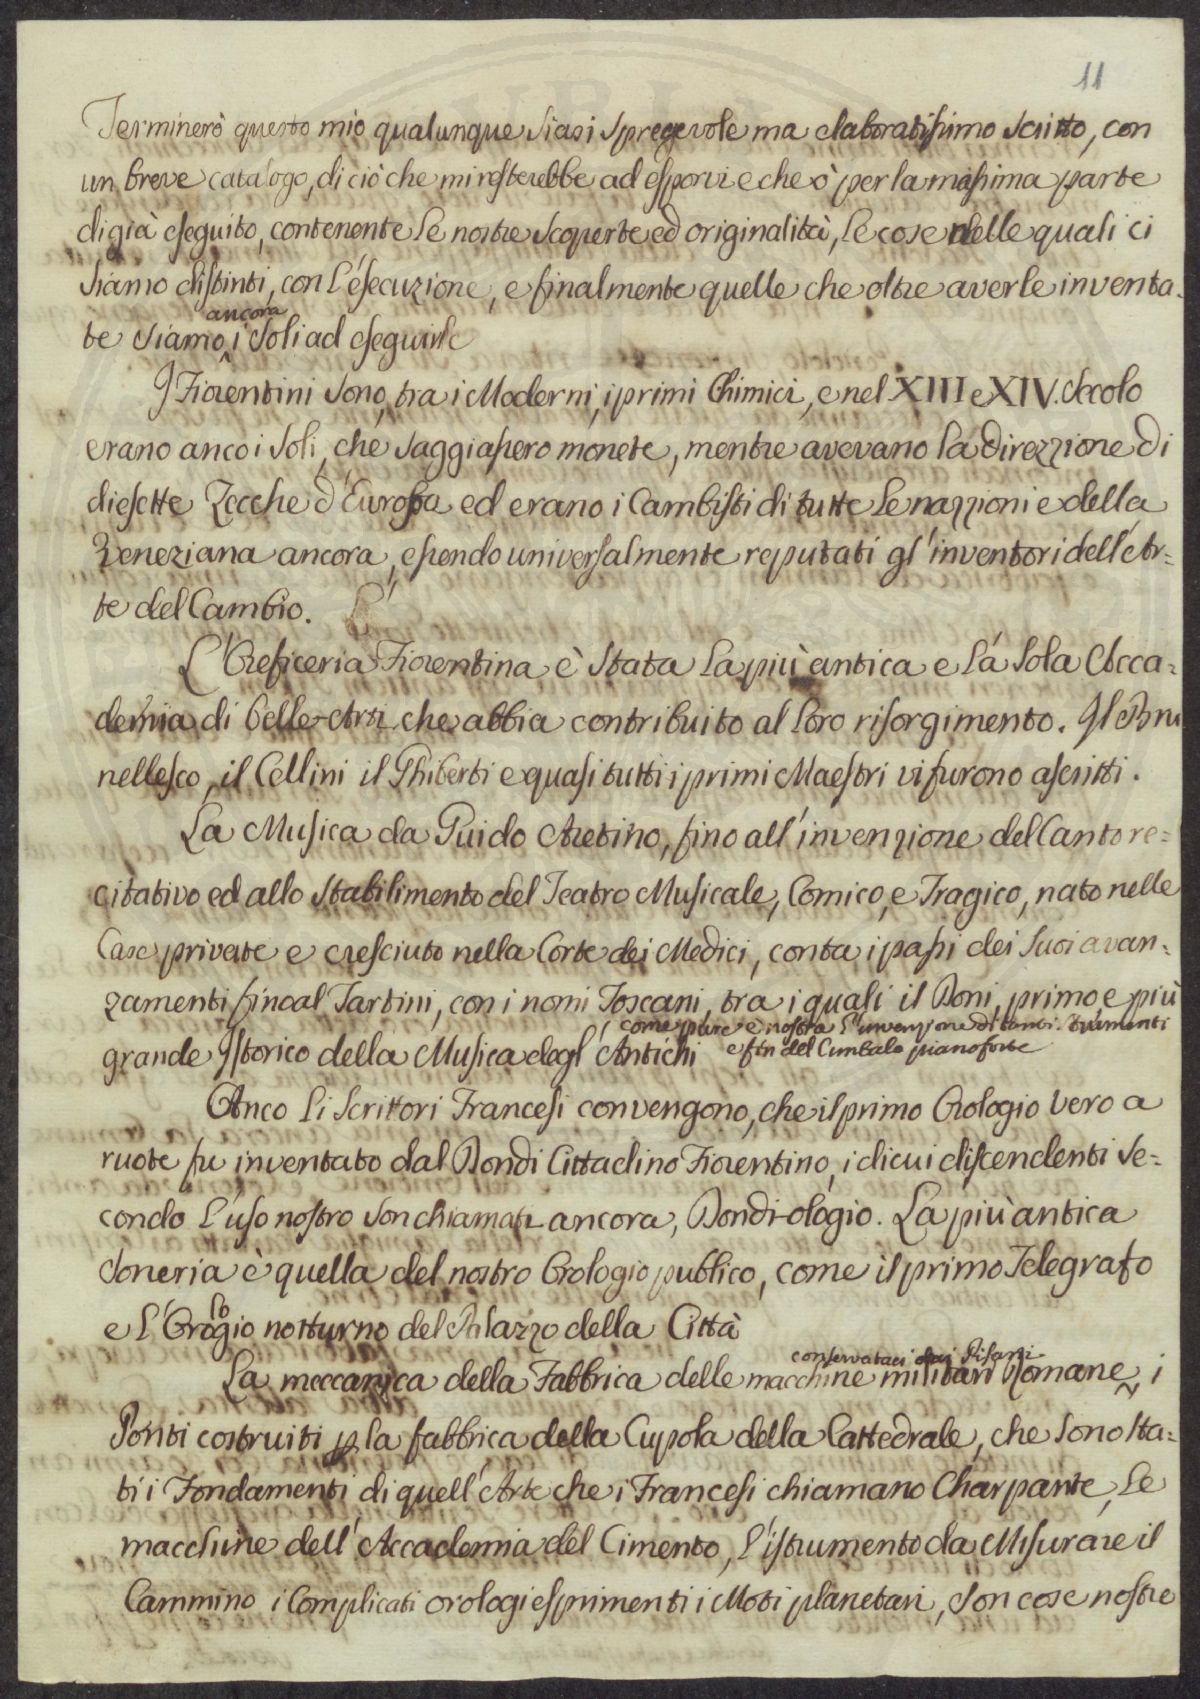 11
Terminerò questo mio qualunque siasi spregevole ma elaboratissimo scritto, con
un breve catalogo, di ciò che mi resterebbe ad esporvi e che ò per la massima parte
di già eseguito, contenente le nostre scoperte ed originalità, le cose nelle quali ci
siamo distinti, con l'esecuzione, e finalmente quelle che oltre averle inventa-
ancora
te siamo i soli ad eseguirle
I Fiorentini sono, tra i Moderni, i primi Chimici, e nel XIII e XIV. secolo
erano anco i soli, che saggiassero monete, mentre avevano la direzzione di
diesette Zecche d'Europa ed erano i Cambisti di tutte le nazzioni e della
Veneziana ancora, essendo universalmente reputati gl'inventori dell'Ar-
te del Cambio.
L'Oreficeria Fiorentina è stata la più antica e la sola Acca-
demia di belle-Arti che abbia contribuito al loro risorgimento. Il Bru
nellesco, il Cellini il Ghiberti e quasi tutti i primi Maestri vi furono ascritti.
La Musica da Guido Aretino, fino all'invenzione del Canto re-
citativo ed allo stabilimento del Teatro Musicale, Comico, e Tragico, nato nelle
Case private e cresciuto nella Corte dei Medici, conta i passi dei suoi avan-
zamenti fino al Tartini, con i nomi Toscani, tra i quali il Doni, primo e più
come pure è nostra l'invenzione di tanti strumenti
grande Istorico della Musica degl'Antichi e fin del Cimbalo pianoforte
Anco li Scrittori Francesi convengono, che il primo Orologio vero a
ruote fu inventato dal Dondi Cittadino Fiorentino, i di cui discendenti se-
condo l'uso nostro son chiamati ancora, Dondi-ologio. La più antica
soneria è quella del nostro Orologio publico, come il primo Telegrafo
lo
e l'Orogio notturno del Palazzo della Città
conservataci dai Pisani
La meccanica della Fabbrica delle macchine militari Romane, i
Ponti costruiti p la fabbrica della Cupola della Cattedrale, che sono sta-
ti i Fondamenti di quell'Arte che i Francesi chiamano Charpante, le
macchine dell'Accademia del Cimento, l'istrumento da Misurare il
Cammino i Complicati orologi esprimenti i Moti planetari, son cose nostre